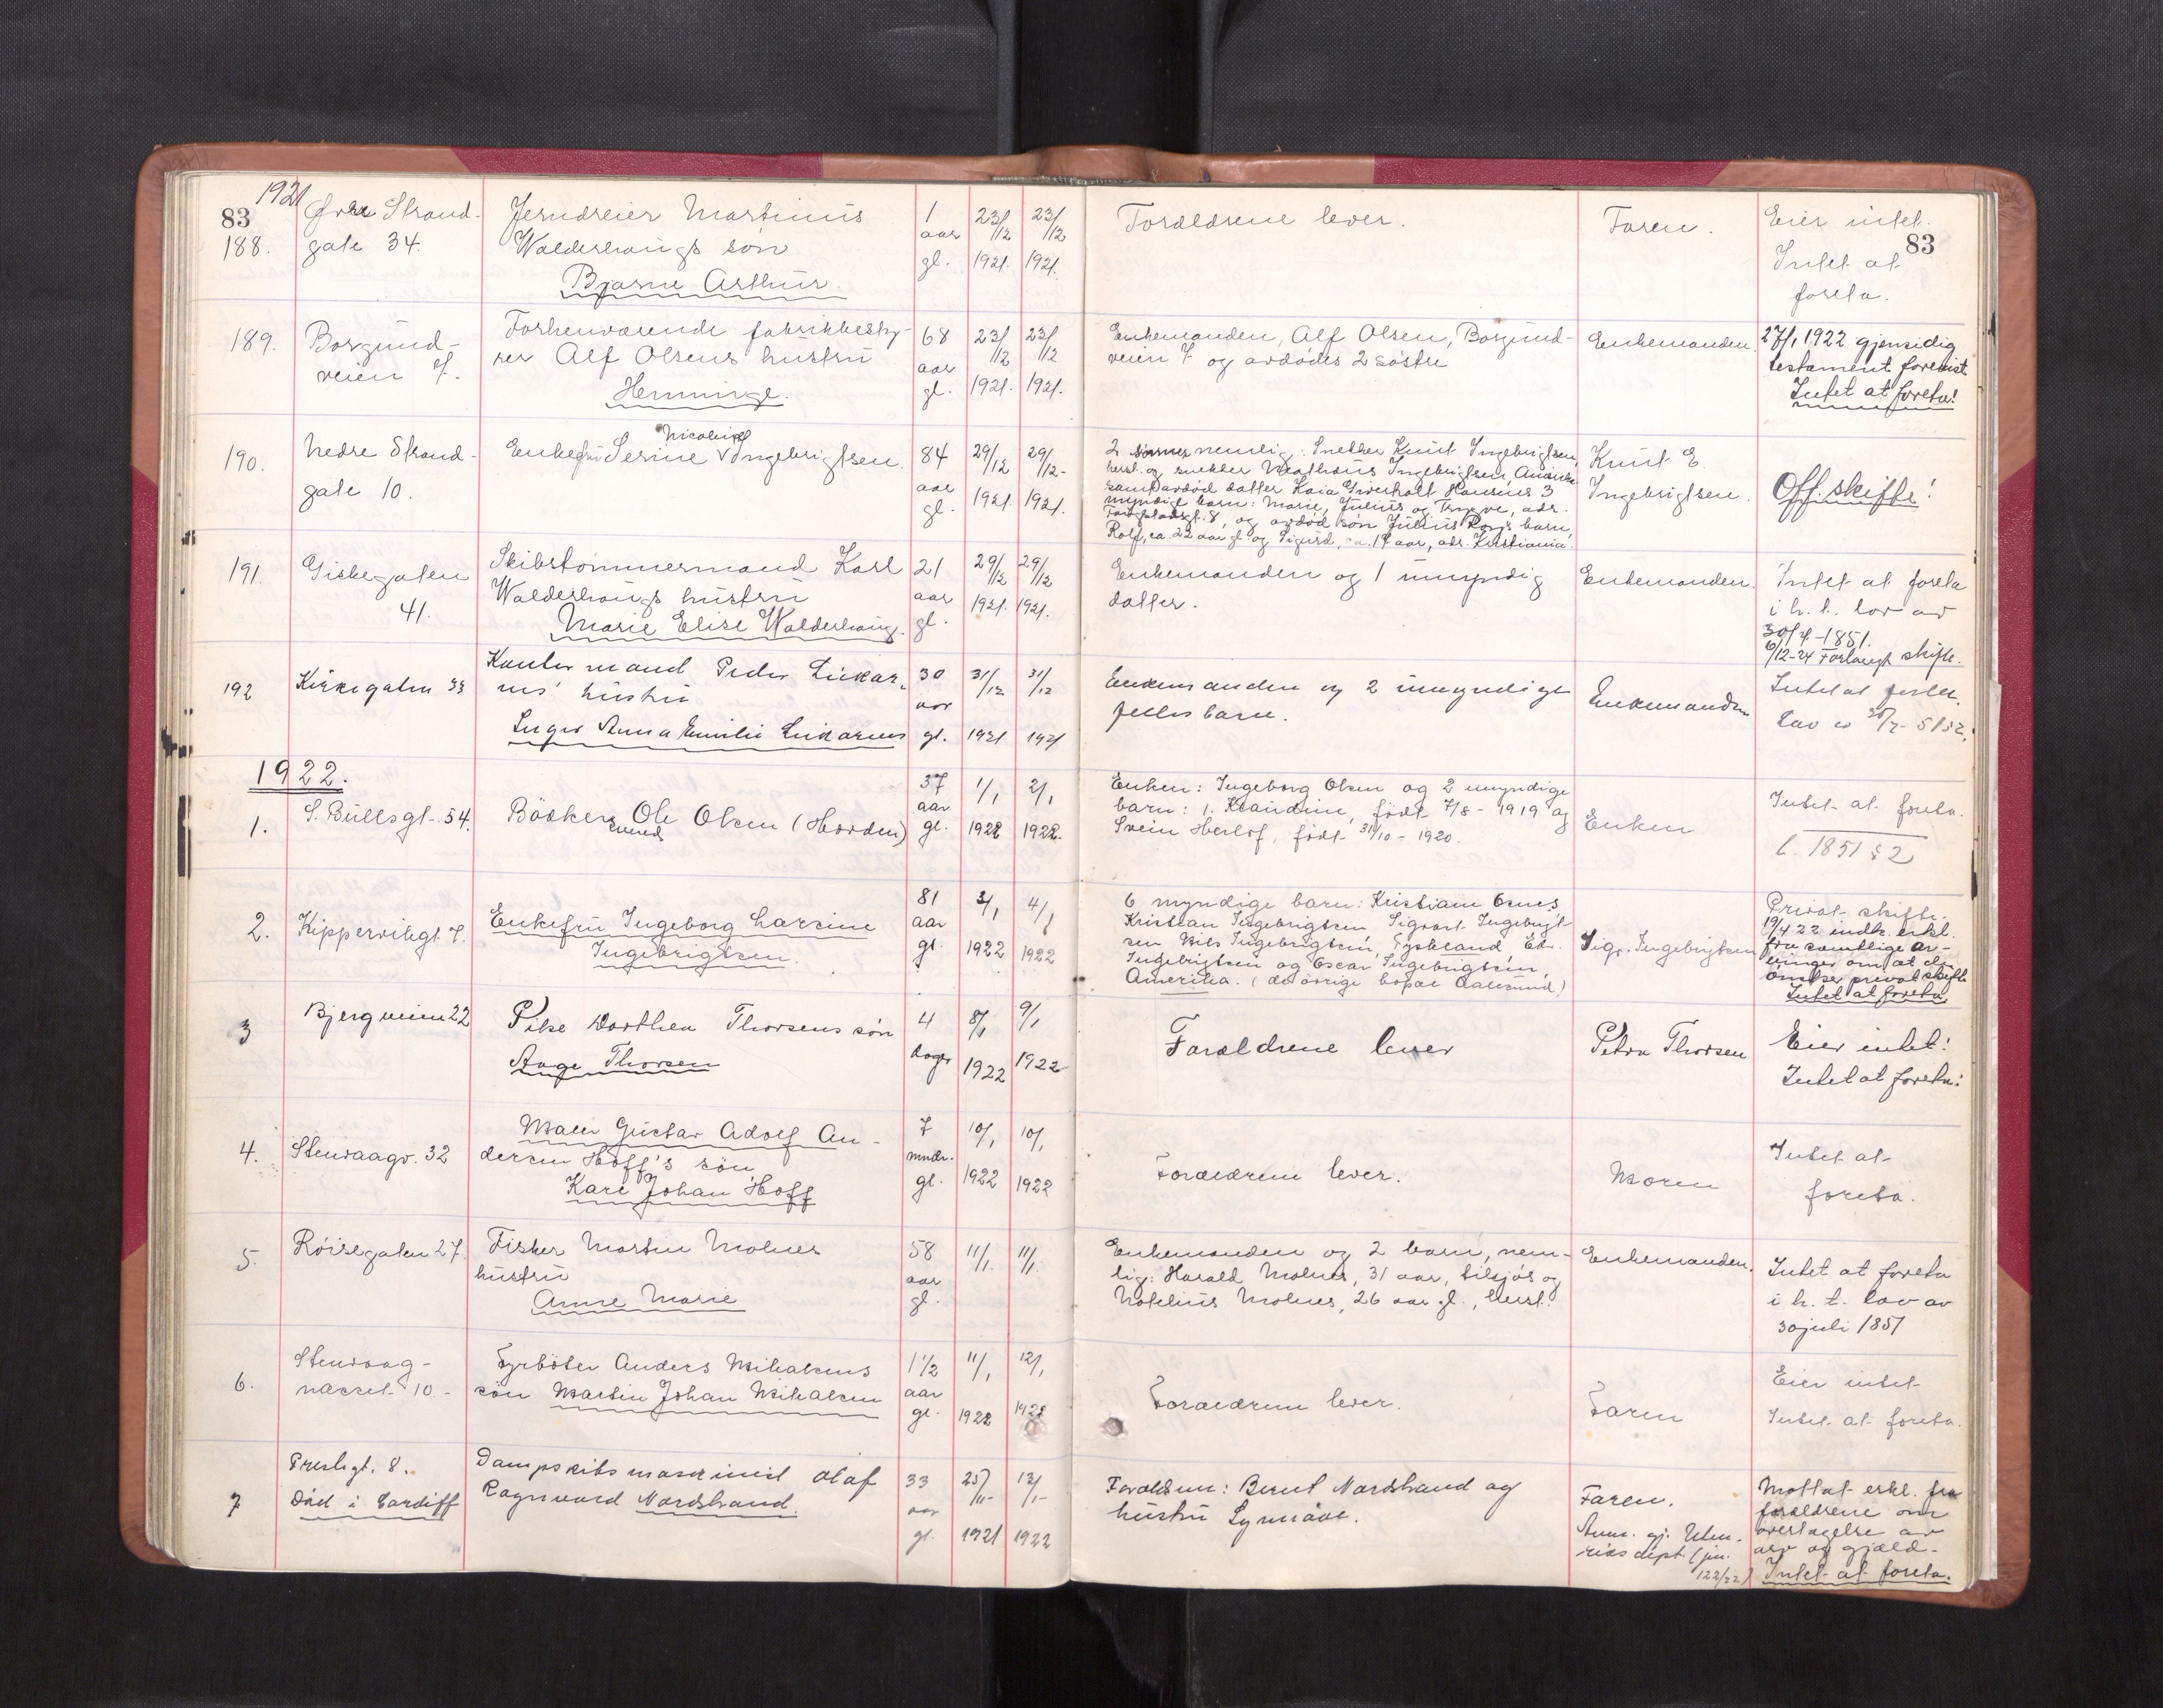 1921
83
188.
Øvre Strand-
gate 34.
Jerndreier Martinus
Walderhaugs søn
Bjarne Arthur.
1
aar
gl.
23/12
1921.
23/12
1921.
Forældrene lever.
Faren.
Eier intet.
83
Intet at
foreta.
189.
Borgund-
veien 7.
Forhenværende fabrikkesty-
rer Alf Olsens hustru
Henninge.
68
aar
gl.
23/12
1921.
23/12
1921.
Enkemanden, Alf Olsen, Borgund-
veien 7 og avdødes 2 søstre
Enkemanden.
27/1 1922 gjensidig
testament forevist
Intet at foreta!
190.
Nedre Strand-
gate 10.
Nicoline
Enkefru Serine Ingebrigtsen.
84
aar
gl.
29/12
1921.
29/12-
1921.
2 sønner nemlig: Snekker Knut Ingebrigtsen,
hersl. og snekker Mathæus Ingebrigtsen,
samt avdød datter Kaia Hansens 3
myndige barn: Marie, Julius og Trygve, adr.
8, og avdød søn Julius barn,
Rolf, ca 22 aar gl og Sigurd, ca. 19 aar, adr. Kristiania.
Knut E.
Ingebrigtsen.
Off. skifte!
191.
Giskegaten
41.
Skibstømmermand Karl
Walderhaugs hustru
Marie Elise Walderhaug.
21
aar
gl.
29/12
1921.
29/12
1921.
Enkemanden og 1 umyndig
datter.
Enkemanden.
Intet at foreta
i h. t. lov av
30/7-1851.
6/12-24 Forlangt skifte.
192
Kirkegaten 33
Kontormand Peder
hustru
Inger Anna Emilie
30
aar
gl.
31/12
1921
31/12
1921
Enkemanden og 2 umyndige
felles barn.
Enkemanden
Intet at foreta.
1922.
1.
S. Bullsgt. 54.
Bødkersvend Ole Olsen (Horden)
37
aar
gl.
1/1
1922
2/1
1922.
Enken: Ingeborg Olsen og 2 umyndige
barn: 1. Klaudine, født 7/8-1919 og
Svein Herlof, født 31/10-1920.
Enken
Intet at foreta.
L. 1851 § 2
2.
Kippervikgt. 7.
Enkefru Ingeborg Larsine
Ingebrigtsen.
81
aar
gl.
3/1
1922
4/1
1922
6 myndige barn: Kristiane Osnes,
Kristian Ingebrigtsen Sigvart Ingebrigt-
sen Nils Ingebrigtsen, Tyskland Edv.
Ingebrigtsen og Oscar Ingebrigtsen,
Amerika. (de øvrige bopæl Aalesund)
Sigv. Ingebrigtsen
Privat skifte.
19/4 22 indk. erkl.
fra samtlige ar-
vinger om at de
ønsker privat skifte
Intet at foreta
3
Bjergveien 22
Pike Dorthea Thorsens søn
Aage Thorsen
4
dager
8/1
1922
9/1
1922
Forældrene lever
Petra Thorsen
Eier intet!
Intet at foreta!
4.
Stenvaagv. 32
Maler Gustav Adolf An-
dersen Hoff's søn
Kare Johan Hoff
7
mndr.
gl.
10/1
1922
10/1
1922
Forældrene lever.
Moren
Intet at
foreta.
5.
Röisegaten 27.
Fisker Martin Molnes
hustru
Anne Marie
58
aar
gl.
11/1.
11/1.
Enkemanden og 2 barn, nem-
lig: Harald Molnes, 31 aar, tilsjøs og
Notelius Molnes, 26 aar gl., hersl.
Enkemanden.
Intet at foreta
i h. t. lov av
30 juli 1851
6.
Stenvaag-
næsset 10-
Fyrbøter Anders Mikalsens
søn Martin Johan Mikalsen
1 1/2
aar
gl.
11/1
1922
12/1
1922
Forældrene lever.
Faren
Eier intet
Intet at foreta.
7
Prestgt. 8.
Död i Cardiff
Dampskibsmaskinist Olaf
Ragnvard Nordstrand.
33
aar
gl.
25/11-
1921
12/1-
1922
Forældrene: Bernt Nordstrand og
hustru Synnöve.
Faren.
Anm. gj. Uten-
riksdept. (jnr.
122/22)
Mottat erkl. fra
forældrene om
overtagelse av
arv og gjæld-
Intet at foreta.